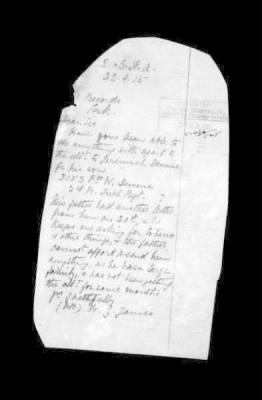 S. & S. F. A.
22.4.15
Records
Cork.
Dear Sir
Have you been able to
do anything with regard to
the allt. to Jeremiah
for his son
3153 Pte W.
2d R. Irish Regt. ?
His father had another letter
from him on 20th, & he
keeps on asking for tobacco
& other things, & the father
cannot afford to send him
anything, as he has a large
family, & has not been getting
the allt. for some months.
Yrs faithfully
W. J. James